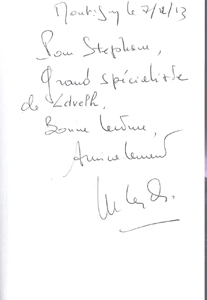 Montigny le 7/12/13
Pour Stephan,
Grand spécialiste
de
Bonne lecture,
Amicalement